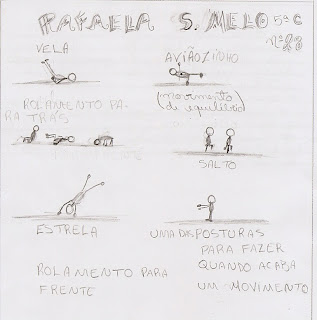 RAFAELA S. MELO 5ª C
Nº 23
VELA
AVIÃOZINHO
(movimento
de equilíbrio)
ROLAMENTO PA-
RA TRÁS
SALTO
ESTRELA
UMA DAS POSTURAS
PARA FAZER
QUANDO ACABA
UM MOVIMENTO
ROLAMENTO PARA
FRENTE